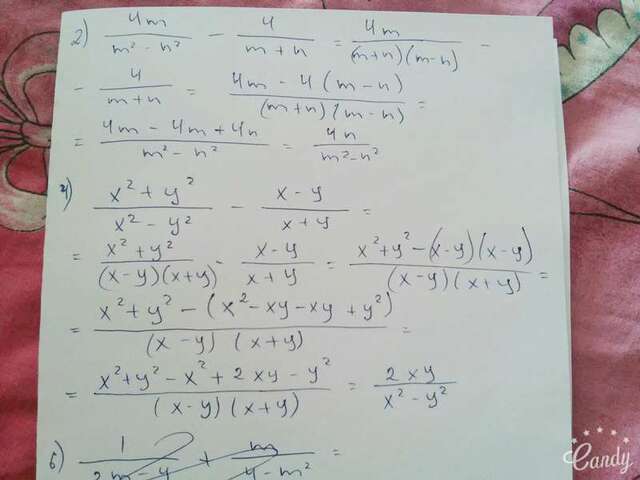 2) 4m/(m² - n²) - 4/(m + n) = 4m/((m+n)(m-n)) -
- 4/(m+n) = (4m - 4(m - n))/((m+n)(m-n)) =
= (4m - 4m + 4n)/(m² - n²) = 4n/(m² - n²)
4) (x² + y²)/(x² - y²) - (x - y)/(x + y) =
= (x² + y²)/((x-y)(x+y)) - (x - y)/(x + y) = (x² + y² - (x-y)(x-y))/((x-y)(x+y)) =
= (x² + y² - (x² - xy - xy + y²))/((x - y)(x + y)) =
= (x² + y² - x² + 2xy - y²)/((x-y)(x+y)) = 2xy/(x² - y²)
6) 1/(2m - 4) + m/(4 - m²) =
Candy